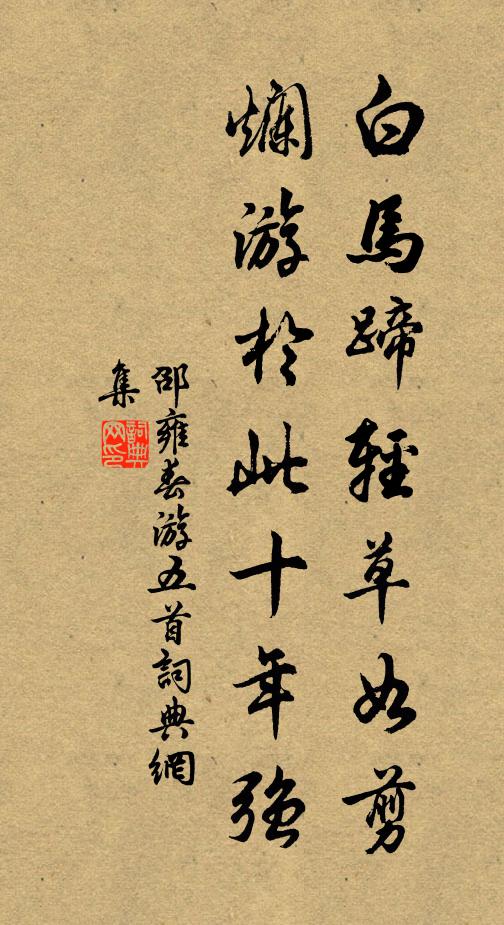 白馬蹄輕草如剪
爛游於此十年強
邵雍春游五首詞典網
集
詞典
网印